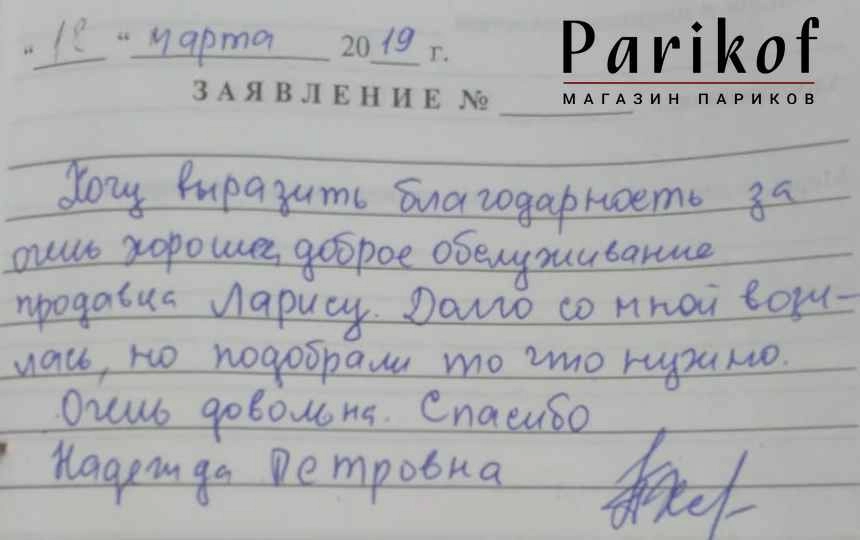 Parikof
МАГАЗИН ПАРИКОВ
"18" марта 2019 г.
ЗАЯВЛЕНИЕ №
Хочу выразить благодарность за
очень хорошее, доброе обслуживание
продавца Ларису. Долго со мной вози-
лась, но подобрали то что нужно.
Очень довольна. Спасибо
Надежда Петровна